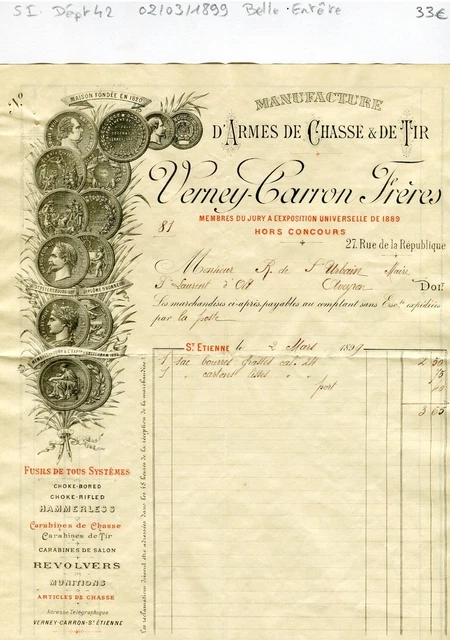 SI. Dépt 42 02/03/1899 Belle Entête 33€
N°
MAISON FONDÉE EN 1820
MANUFACTURE
D'ARMES DE CHASSE & DE TIR
Verney-Carron Frères
MEMBRES DU JURY A L'EXPOSITION UNIVERSELLE DE 1889
HORS CONCOURS
81
27, Rue de la République
Monsieur R. de St Urbain Maire
St Laurent d'Olt Aveyron Doit
Les marchandises ci-après payables au comptant sans Escte expédiées
par la poste
ST ETIENNE le 2 Mars 1899
1 sac bourres grasses cal. 24 2 50
1 " cartons lisses " " 75
port 40
3 65
FUSILS DE TOUS SYSTÈMES
CHOKE-BORED
CHOKE-RIFLED
HAMMERLESS
Carabines de Chasse
Carabines de Tir
CARABINES DE SALON
REVOLVERS
MUNITIONS
ARTICLES DE CHASSE
Adresse Télégraphique
VERNEY-CARRON-ST ÉTIENNE
Les réclamations doivent être adressées dans les 48 heures de la réception de la marchandise